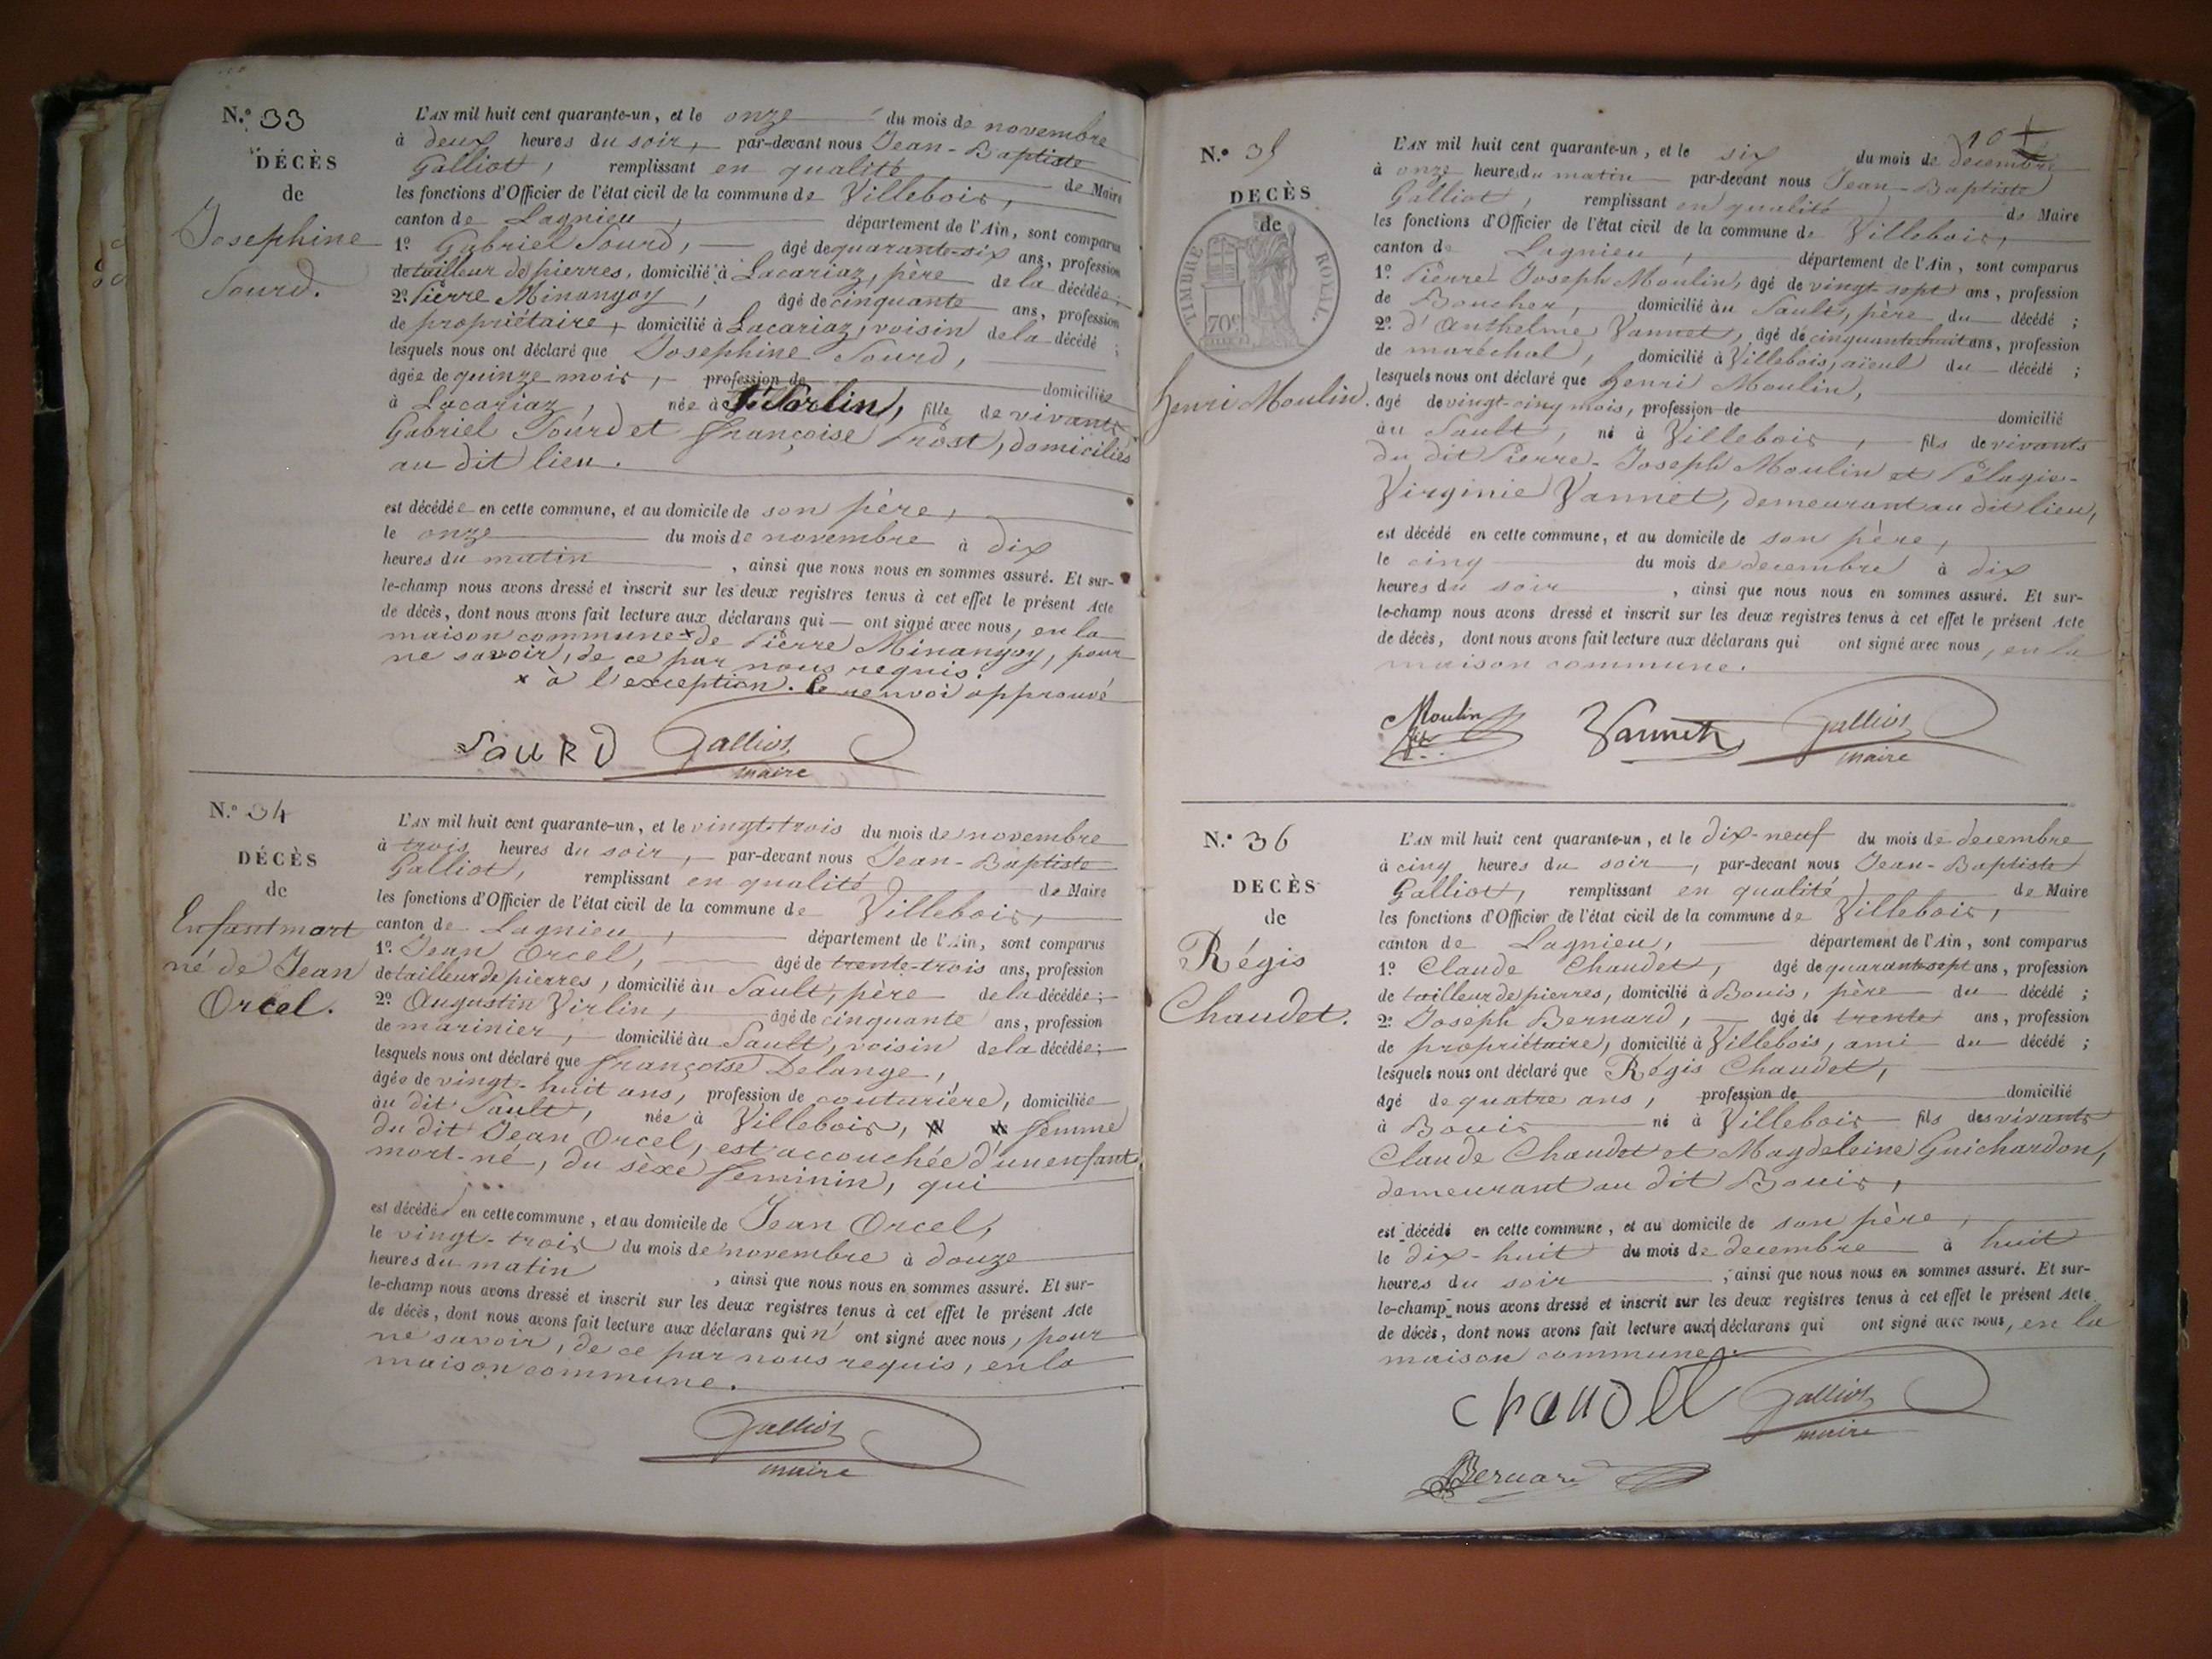 N.º 33
DÉCÈS
de
Josephine
Sourd.
L'AN mil huit cent quarante-un, et le onze du mois de novembre
à deux heures du soir, par-devant nous Jean-Baptiste
Galliot, remplissant en qualité de Maire
les fonctions d'Officier de l'état civil de la commune de Villebois,
canton de Lagnieu, département de l'Ain, sont comparus
1º. Gabriel Sourd, âgé de quarante-six ans, profession
de tailleur de pierres, domicilié à Lacariaz, père de la décédée;
2º. Pierre Minangoy, âgé de cinquante ans, profession
de propriétaire, domicilié à Lacariaz, voisin de la décédé ;
lesquels nous ont déclaré que Josephine Sourd,
âgée de quinze mois, profession de domiciliée
à Lacariaz, née à St Sorlin, fille de vivants
Gabriel Sourd et françoise Prost, domiciliés
au dit lieu.
est décédée en cette commune, et au domicile de son père,
le onze du mois de novembre à dix
heures du matin , ainsi que nous nous en sommes assuré. Et sur-
le-champ nous avons dressé et inscrit sur les deux registres tenus à cet effet le présent Acte
de décès, dont nous avons fait lecture aux déclarans qui — ont signé avec nous, en la
maison commune x de Pierre Minangoy, pour
ne savoir, de ce par nous requis.
x à l'exception. Le renvoi approuvé
SOURD Galliot
maire
N.º 34
DÉCÈS
de
Enfant mort
né de Jean
Orcel.
L'AN mil huit cent quarante-un, et le vingt-trois du mois de novembre
à trois heures du soir, par-devant nous Jean-Baptiste
Galliot, remplissant en qualité de Maire
les fonctions d'Officier de l'état civil de la commune de Villebois,
canton de Lagnieu, département de l'Ain, sont comparus
1º. Jean Orcel, âgé de trente-trois ans, profession
de tailleur de pierres, domicilié au Sault, père de la décédée;
2º. Augustin Virlin, âgé de cinquante ans, profession
de marinier, domicilié au Sault, voisin de la décédée;
lesquels nous ont déclaré que françoise Delange,
âgée de vingt-huit ans, profession de couturière, domiciliée
au dit Sault, née à Villebois, femme
du dit Jean Orcel, est accouchée d'un enfant
mort-né, du sèxe feminin, qui
est décédé en cette commune, et au domicile de Jean Orcel,
le vingt-trois du mois de novembre à douze
heures du matin , ainsi que nous nous en sommes assuré. Et sur-
le-champ nous avons dressé et inscrit sur les deux registres tenus à cet effet le présent Acte
de décès, dont nous avons fait lecture aux déclarans qui n' ont signé avec nous, pour
ne savoir, de ce par nous requis, en la
maison commune.
Galliot
maire
10
N.º 35
DECÈS
de
TIMBRE ROYAL.
70c
henri Moulin.
L'AN mil huit cent quarante-un, et le six du mois de decembre
à onze heures du matin par-devant nous Jean-Baptiste
Galliot, remplissant en qualité de Maire
les fonctions d'Officier de l'état civil de la commune de Villebois,
canton de Lagnieu, département de l'Ain, sont comparus
1º. Pierre Joseph Moulin, âgé de vingt sept ans, profession
de Boucher, domicilié au Sault, père du décédé ;
2º. d'Anthelme Vannet, âgé de cinquante-huit ans, profession
de maréchal, domicilié à Villebois, aïeul du décédé ;
lesquels nous ont déclaré que henri Moulin,
âgé de vingt-cinq mois, profession de domicilié
au Sault, né à Villebois, fils de vivants
du dit Pierre-Joseph Moulin et Pélagie-
Virginie Vannet, demeurant au dit lieu,
est décédé en cette commune, et au domicile de son père,
le cinq du mois de decembre à dix
heures du soir , ainsi que nous nous en sommes assuré. Et sur-
le-champ nous avons dressé et inscrit sur les deux registres tenus à cet effet le présent Acte
de décès, dont nous avons fait lecture aux déclarans qui ont signé avec nous, en la
maison commune.
Moulin Vannet Galliot
maire
N.º 36
DECÈS
de
Régis
Chaudet.
L'AN mil huit cent quarante-un, et le dix-neuf du mois de decembre
à cinq heures du soir, par-devant nous Jean-Baptiste
Galliot, remplissant en qualité de Maire
les fonctions d'Officier de l'état civil de la commune de Villebois,
canton de Lagnieu, département de l'Ain, sont comparus
1º. Claude Chaudet, âgé de quarante-sept ans, profession
de tailleur de pierres, domicilié à Bouis, père du décédé ;
2º. Joseph Bernard, âgé de trente ans, profession
de propriétaire, domicilié à Villebois, ami du décédé ;
lesquels nous ont déclaré que Régis Chaudet,
âgé de quatre ans, profession de domicilié
à Bouis né à Villebois fils des vivants
Claude Chaudet et Magdeleine Guichardon,
demeurant au dit Bouis,
est décédé en cette commune, et au domicile de son père,
le dix-huit du mois de decembre à huit
heures du soir , ainsi que nous nous en sommes assuré. Et sur-
le-champ nous avons dressé et inscrit sur les deux registres tenus à cet effet le présent Acte
de décès, dont nous avons fait lecture aux déclarans qui ont signé avec nous, en la
maison commune.
Chaudet Galliot
maire
Bernard